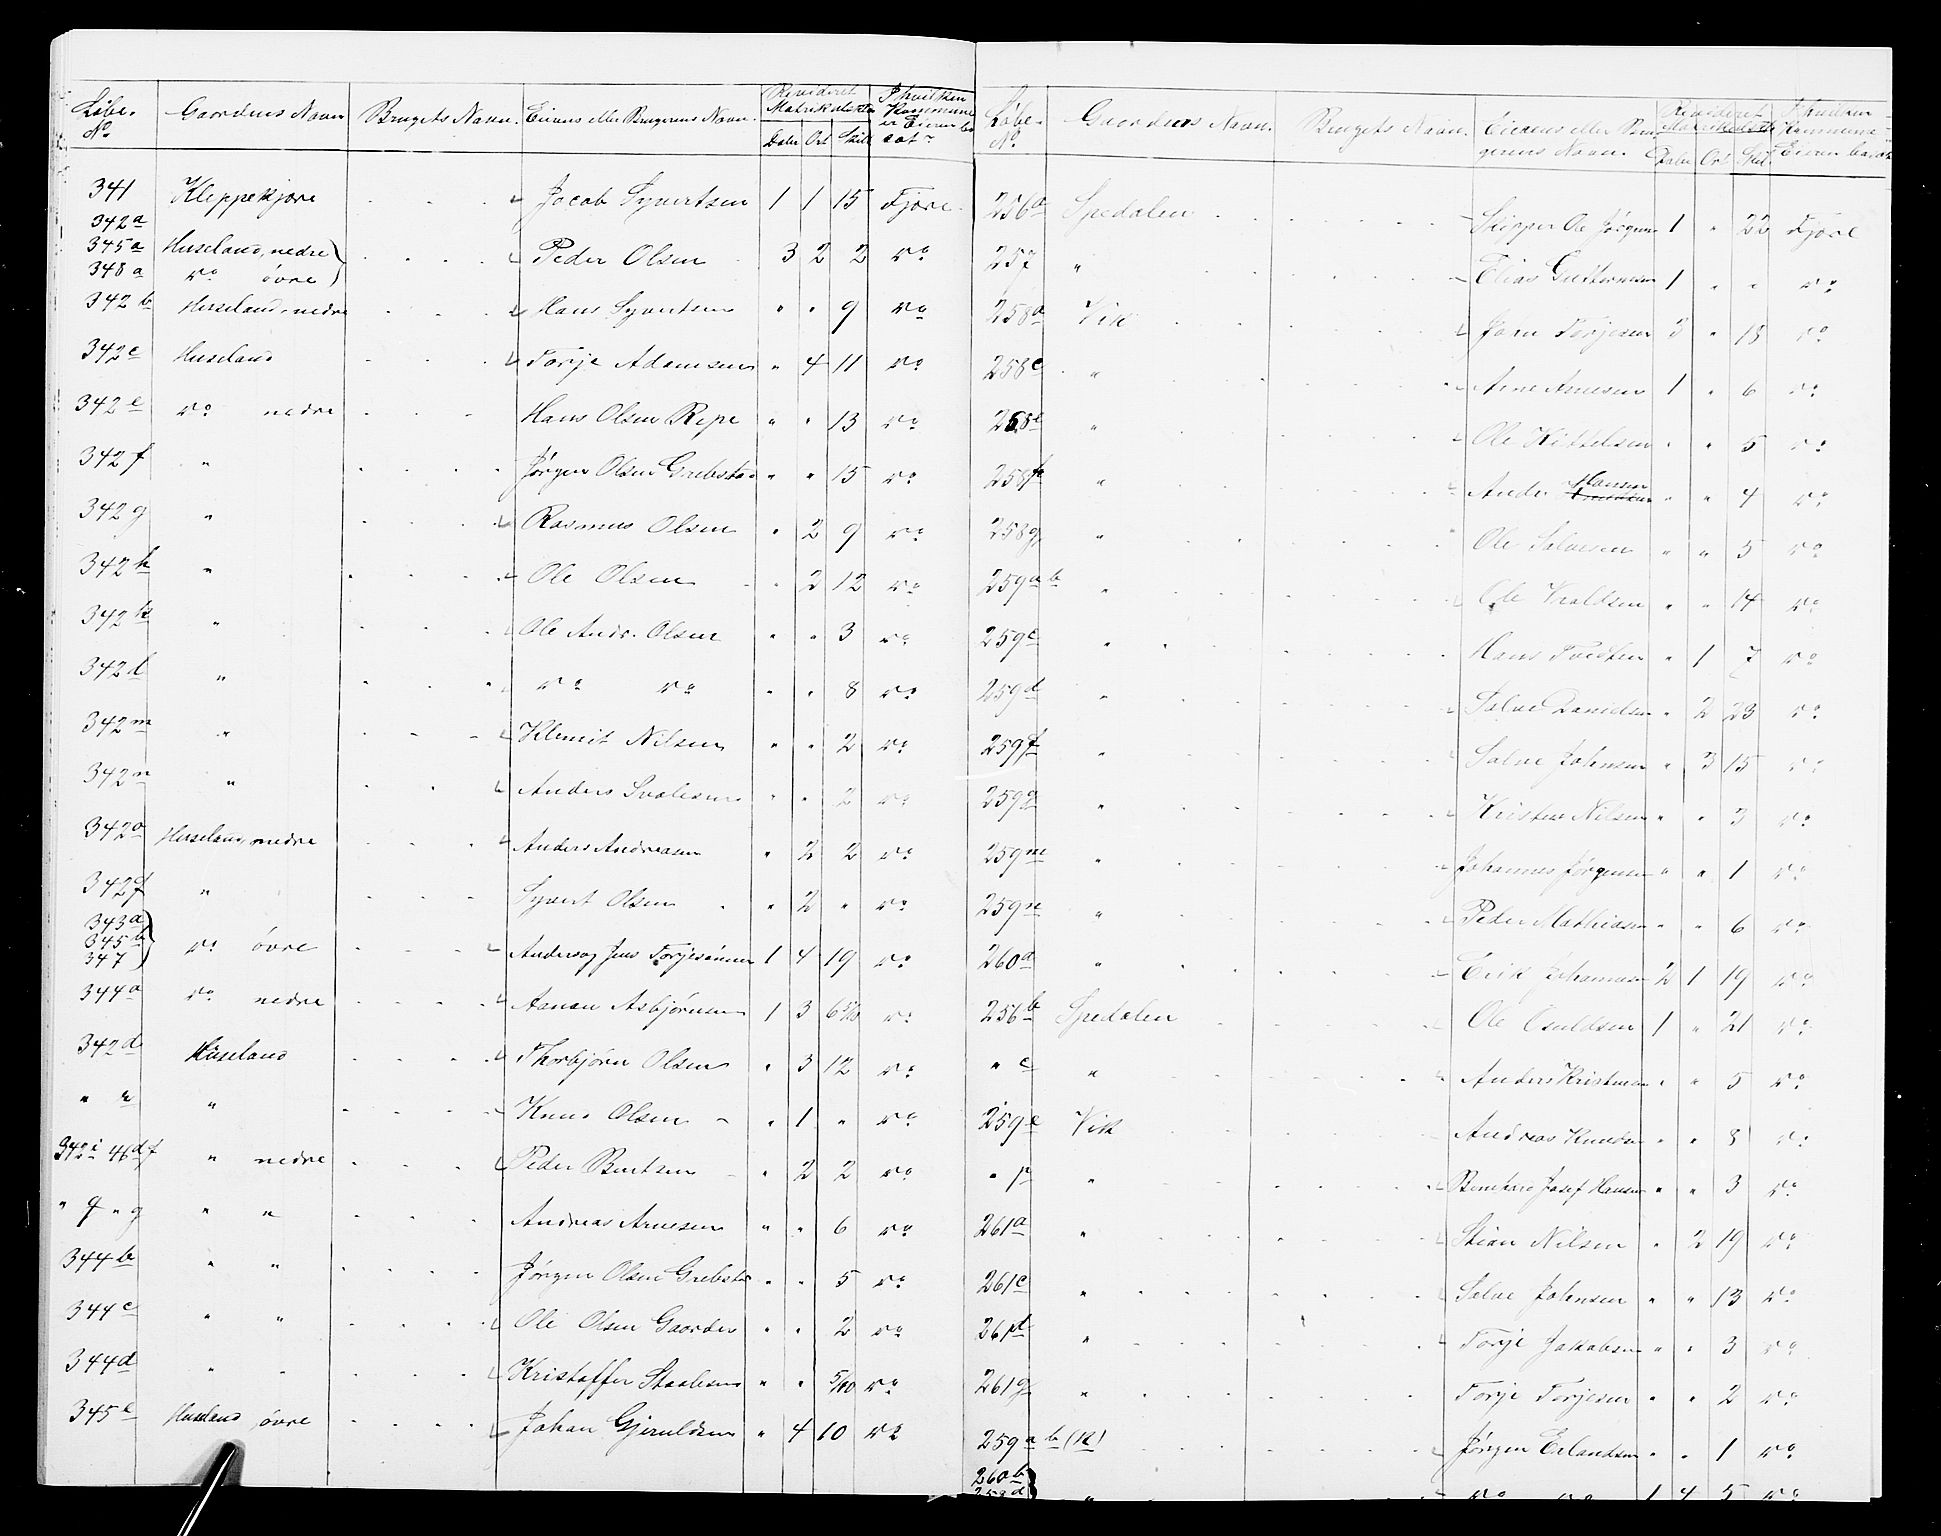 Løbe. No Gaardens Navn Brugets Navn. Eierens eller Brugerens Navn. Revideret Matrikulskyld Daler Ort Skill I hvilken Kommune er Eieren bosat
341 Kleppekjøre Jacob Syvertsen 1 1 15 Fjære
342a
345a Huseland, nedre Peder Olsen 3 2 2 do
348a do øvre
342b Huseland, nedre Hans Syvertsen " " 9 do
342c Huseland Torje Adamsen " 4 11 do
342e do nedre Hans Olsen Repe " " 13 do
342f " Jørgen Olsen Grebsta " " 15 do
342g " Rasmus Olsen " 2 9 do
342h " Ole Olsen " 2 12 do
342k " Ole Andr. Olsen " " 3 do
342l " do do " " 8 do
342m " Klemit Nilsen " " 2 do
342n " Anders " " 2 do
342o Huseland, nedre Anders Andreasen " 2 2 do
342 " Syvert Olsen " 2 " do
343a
345b do øvre Anders og Jens Torjesønner 1 4 19 do
347
344a do nedre Aanon Asbjørnsen 1 3 6 5/10 do
342d Huseland Thorbjørn Olsen " 3 12 do
" " Knud Olsen " 1 " do
342i 46d f " nedre Peder Berntsen " 2 2 do
" q " g " " Andreas Arnesen " " 6 do
344b " " Jørgen Olsen Grebsta " " 5 do
344c " " Ole Olsen Gaarder " " 2 do
344d " " Kristoffer " " 5/10 do
345c Huseland, øvre Johan Gjeruldsen " 4 10 do
Løbe. No Gaardens Navn. Brugets Navn. Eierens eller Bru- gerens Navn. Revideret Matrikulskyld Daler Ort Skil. I hvilken Kommune Eieren bosat
256a Spedalen Skipper Ole Jørgens 1 " 22 Fjære
257 " Elias Guttormsen 1 " " do
258a Vik Jørn Torjesen 3 " 18 do
258c " Arne Arnesen 1 " 6 do
258e " Ole Kittelsen " " 5 do
258f " Anders Hansen " " 4 do
258g " Ole Salvesen " " 5 do
259a b " Ole " " 14 do
259c " Hans Tveiten " 1 7 do
259d " Salve Danielsen " 2 23 do
259f " Salve Johnsen " 3 15 do
259g " Kristen Nilsen " " 3 do
259m " Johannes Jørgensen " " 1 do
259n " Peder Mathiasen " " 6 do
260a " Erik Johannesen 2 1 19 do
256b Spedalen Ole Osuldsen 1 " 21 do
" c " Anders Kristensen " " 5 do
259e Vik Andreas Knudsen " " 8 do
" p " Bernhard Josef Hansen " " 3 do
261a " Stian Nilsen " 2 19 do
261c " Salve Johnsen " " 13 do
261d " Torje Jakobsen " " 3 do
261g " Torje Torjesen " " 2 do
259a b (k) Jørgen Erlandsen " " 1 do
260b
258d " do do 1 4 5 do